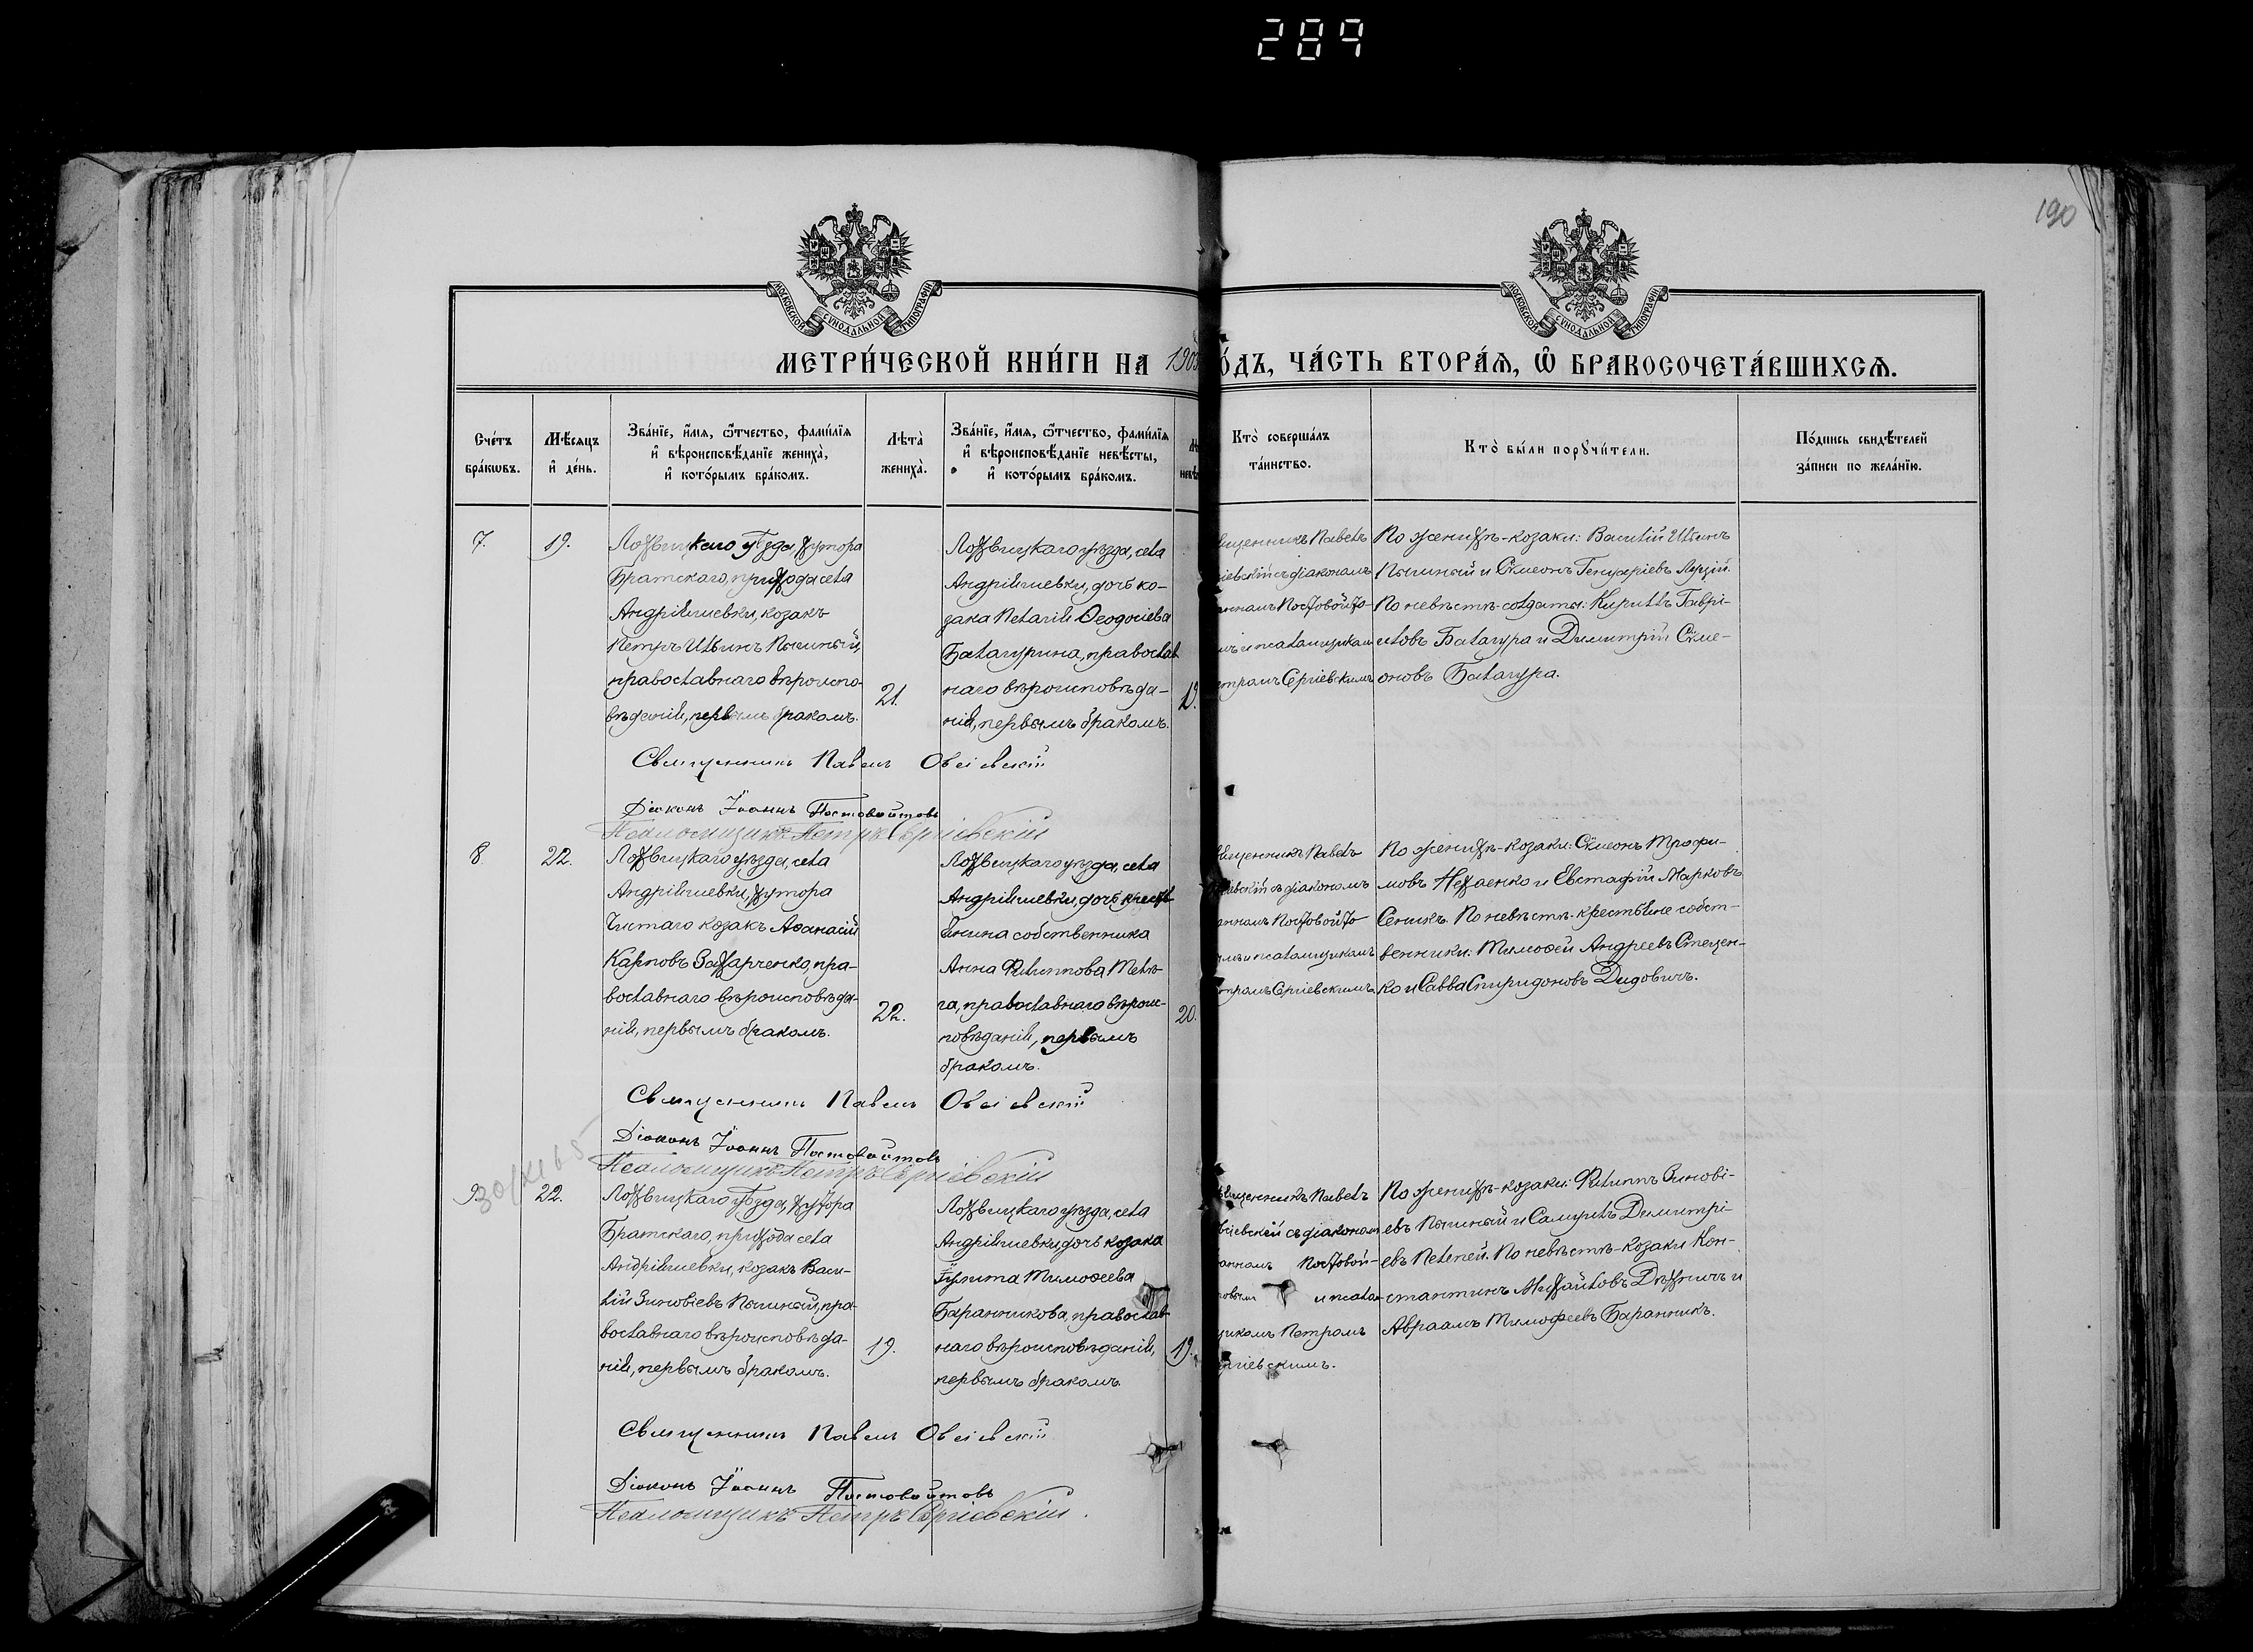 289
190
МОСКОВСКОЙ СѴНОДАЛЬНОЙ ТИПОГРАФІИ
МОСКОВСКОЙ СѴНОДАЛЬНОЙ ТИПОГРАФІИ
МЕТРИ́ЧЕСКОЙ КНИ́ГИ НА 190 ÓДЪ, ЧА́СТЬ ВТОРА́Ѧ, Ѽ БРАКОСОЧЕТА́ВШИХСѦ.
Сче́тъ
бра́кωвъ.
Мѣ́сѧцъ
и҆ де́нь.
Зва́нїе, и҆́мѧ, ѻ҆́тчество, фами́лїѧ
и҆ вѣроисповѣ́данїе жениха̀,
и҆ кото́рымъ бра́комъ.
Лѣта̀
жениха̀.
Зва́нїе, и҆́мѧ, ѻ҆́тчество, фами́лїѧ
и҆ вѣроисповѣ́данїе невѣ́сты,
и҆ кото́рымъ бра́комъ.
Кто̀ соверша́лъ
та́инство.
Кто̀ бы́ли порꙋчи́тели.
По́дпись свидѣ́телей
за́писи по жела́нїю.
7.
19.
Лохвицкаго уѣзда, хутора
Братскаго, прихода села
Андріяшевки, козакъ
Петръ Ильинъ Пышный,
православнаго вѣроиспо-
вѣданія, первымъ бракомъ.
21.
Лохвицкаго уѣзда, села
Андріяшевки, дочь ко-
зака Пелагія Ѳеодосіева
Балагурина, православ
наго вѣроисповѣда-
нія, первымъ бракомъ.
19.
вященникъ Павелъ
іевскій съ діакономъ
анномъ Постовойто-
мъ и псаломщикам
тромъ Сергіевскимъ
По женихѣ-козаки: Василій Ильинъ
Пышный и Сѵмеонъ
По невѣстѣ-солдаты: Кириллъ Гаврі-
иловъ Балагура и Димитрій Сѵме-
оновъ Балагура.
Священникъ Павелъ Овсіевскій
Діаконъ Іоаннъ Постовойтовъ
Псаломщикъ Петръ Сергіевскій
8
22.
Лохвицкаго уѣзда, села
Андріяшевки, хутора
Чистаго козакъ Аѳанасій
Карповъ Захарченко, пра-
вославнаго вѣроисповѣда-
нія, первымъ бракомъ.
22.
Лохвицкаго уѣзда, села
Андріяшевки, дочь крестья
янина собственника
Анна Филиппова Меля-
га, православнаго вѣроис-
повѣданія, первымъ
бракомъ.
20.
вященникъ Павелъ
іевскій съ діакономъ
анномъ Постовойто
ымъ и псаломщикомъ
тромъ Сергіевскимъ
По женихѣ-козаки: Сѵмеонъ Трофи-
мовъ Нехаенко и Евстафій Марковъ
Сеникъ. По невѣстѣ-крестьяне собст-
венники: Тимоѳей Андреевъ Стецен-
ко и Савва Спиридоновъ Дидовичъ.
Священникъ Павелъ Овсіевскій
Діаконъ Іоаннъ Постовойтовъ
Псаломщикъ Петръ Сергіевскій
9
22.
Лохвицкаго уѣзда, хутора
Братскаго, прихода села
Андріяшевки, козакъ Васи-
лій Зиновіевъ Пышный, пра-
вославнаго вѣроисповѣда-
нія, первымъ бракомъ.
19.
Лохвицкаго уѣзда, села
Андріяшевки, дочь козака
Іулита Тимоѳеева
Баранникова, православ-
наго вѣроисповѣданія,
первымъ бракомъ
19.
вященникъ Павелъ
сіевскій съ діакономъ
анномъ Постовой-
товымъ и псалом-
щикомъ Петромъ
ергіевскимъ.
По женихѣ-козаки: Филиппъ Зинові-
евъ Пышный и Самуилъ Димитрі-
евъ Пелепей. По невѣстѣ-козаки Кон-
стантинъ Михайловъ Дяхничъ и
Авраамъ Тимофеевъ Баранникъ.
Священникъ Павелъ Овсіевскій
Діаконъ Іоаннъ Постовойтовъ
Псаломщикъ Петръ Сергіевскій.